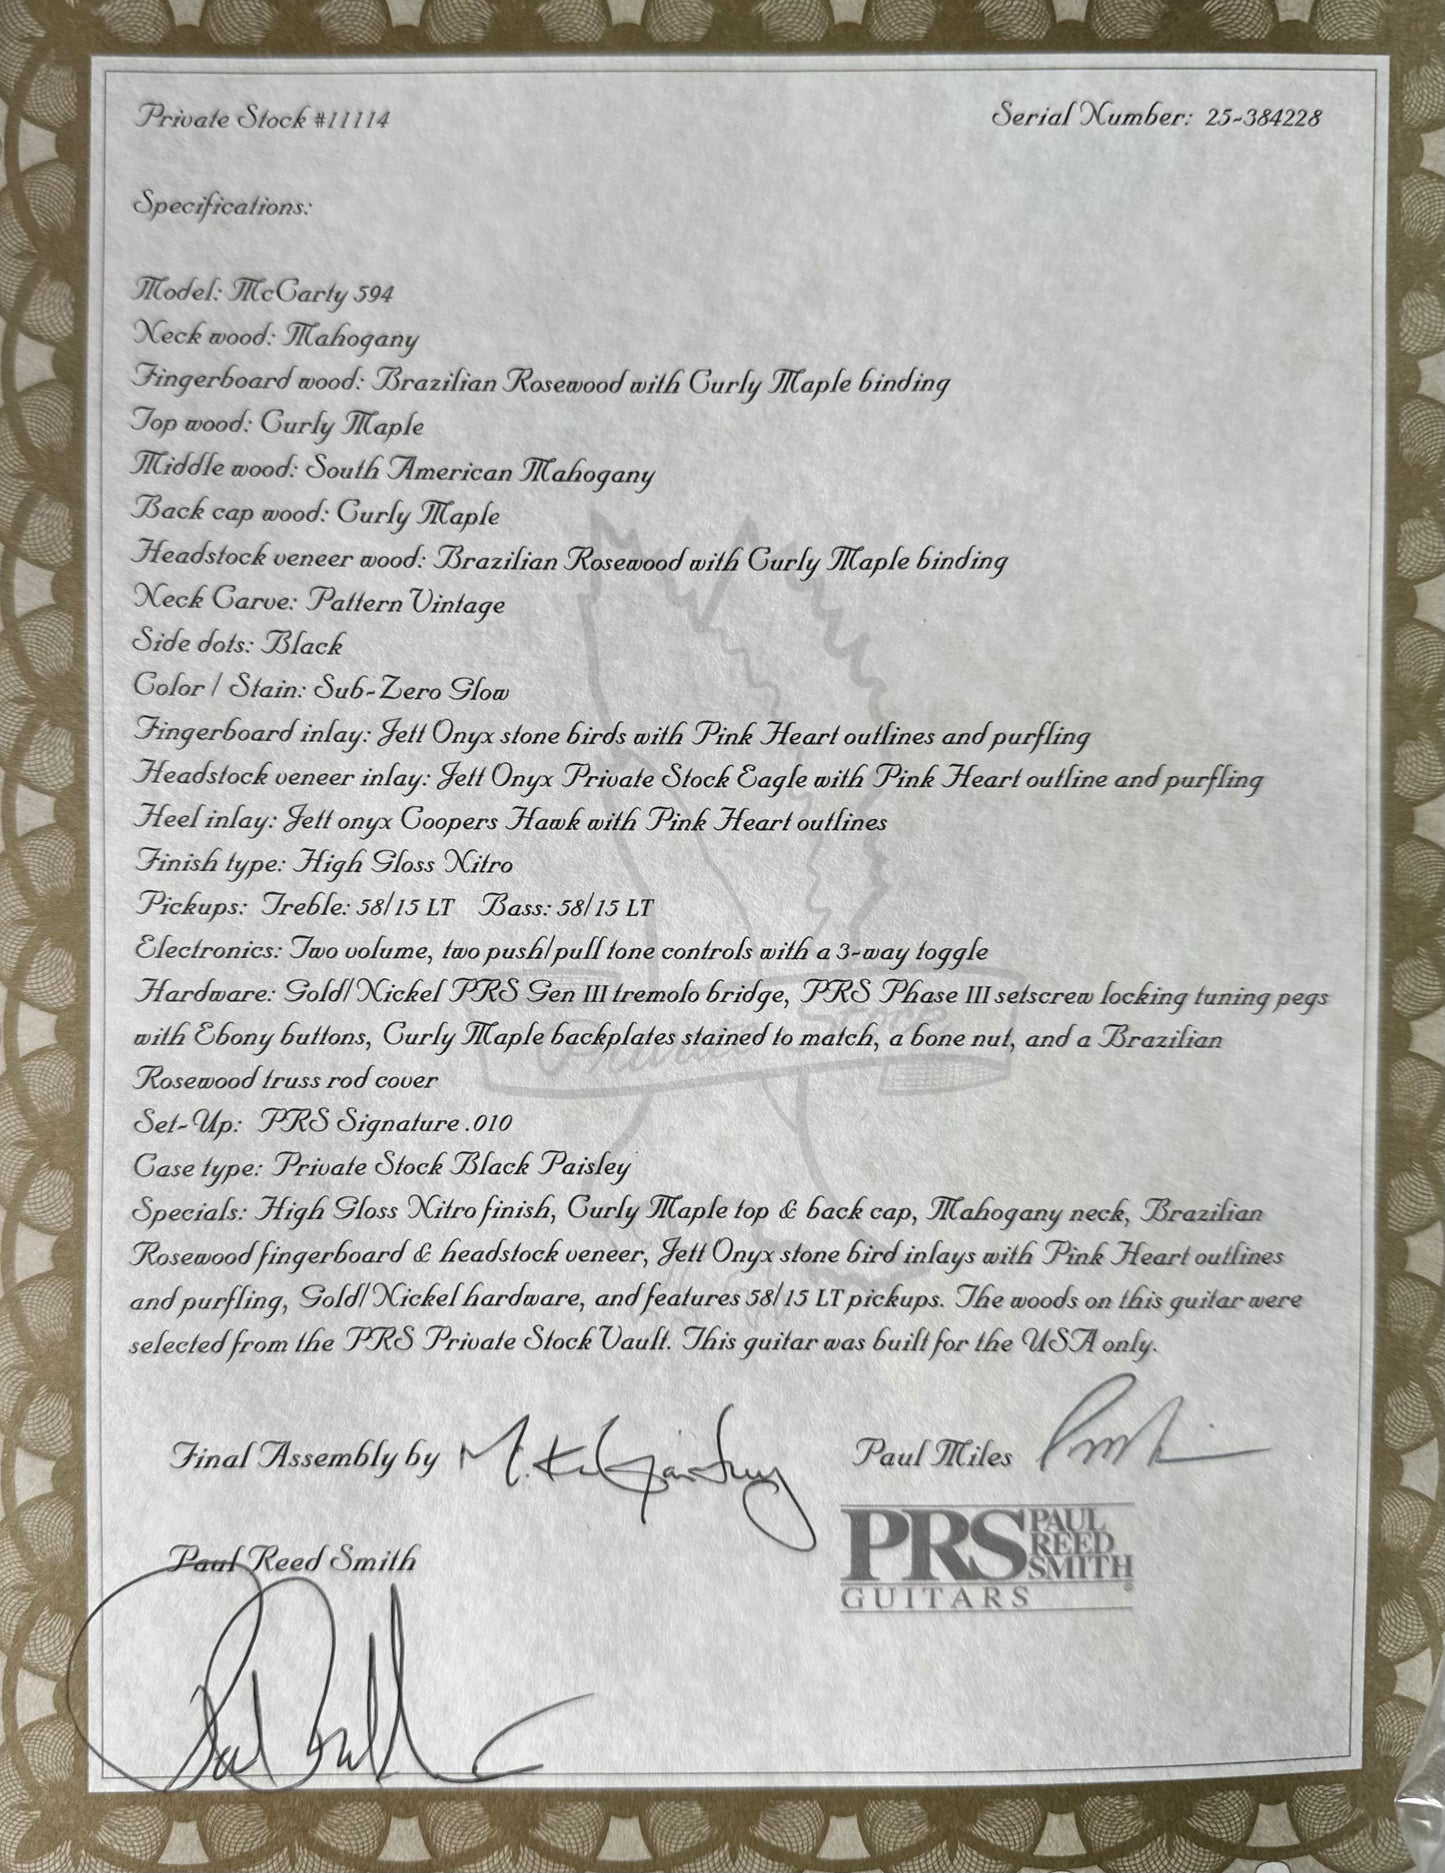 Private Stock #11114
Serial Number: 25-384228
Specifications:
Model: McCarty 594
Neck wood: Mahogany
Fingerboard wood: Brazilian Rosewood with Curly Maple binding
Top wood: Curly Maple
Middle wood: South American Mahogany
Back cap wood: Curly Maple
Headstock veneer wood: Brazilian Rosewood with Curly Maple binding
Neck Carve: Pattern Vintage
Side dots: Black
Color / Stain: Sub-Zero Glow
Fingerboard inlay: Jett Onyx stone birds with Pink Heart outlines and purfling
Headstock veneer inlay: Jett Onyx Private Stock Eagle with Pink Heart outline and purfling
Heel inlay: Jett onyx Coopers Hawk with Pink Heart outlines
Finish type: High Gloss Nitro
Pickups: Treble: 58/15 LT Bass: 58/15 LT
Electronics: Two volume, two push/pull tone controls with a 3-way toggle
Hardware: Gold/Nickel PRS Gen III tremolo bridge, PRS Phase III setscrew locking tuning pegs
with Ebony buttons, Curly Maple backplates stained to match, a bone nut, and a Brazilian
Rosewood truss rod cover
Set-Up: PRS Signature .010
Case type: Private Stock Black Paisley
Specials: High Gloss Nitro finish, Curly Maple top & back cap, Mahogany neck, Brazilian
Rosewood fingerboard & headstock veneer, Jett Onyx stone bird inlays with Pink Heart outlines
and purfling, Gold/Nickel hardware, and features 58/15 LT pickups. The woods on this guitar were
selected from the PRS Private Stock Vault. This guitar was built for the USA only.
Final Assembly by
Paul Miles
Paul Reed Smith
PRS PAUL REED SMITH
GUITARS